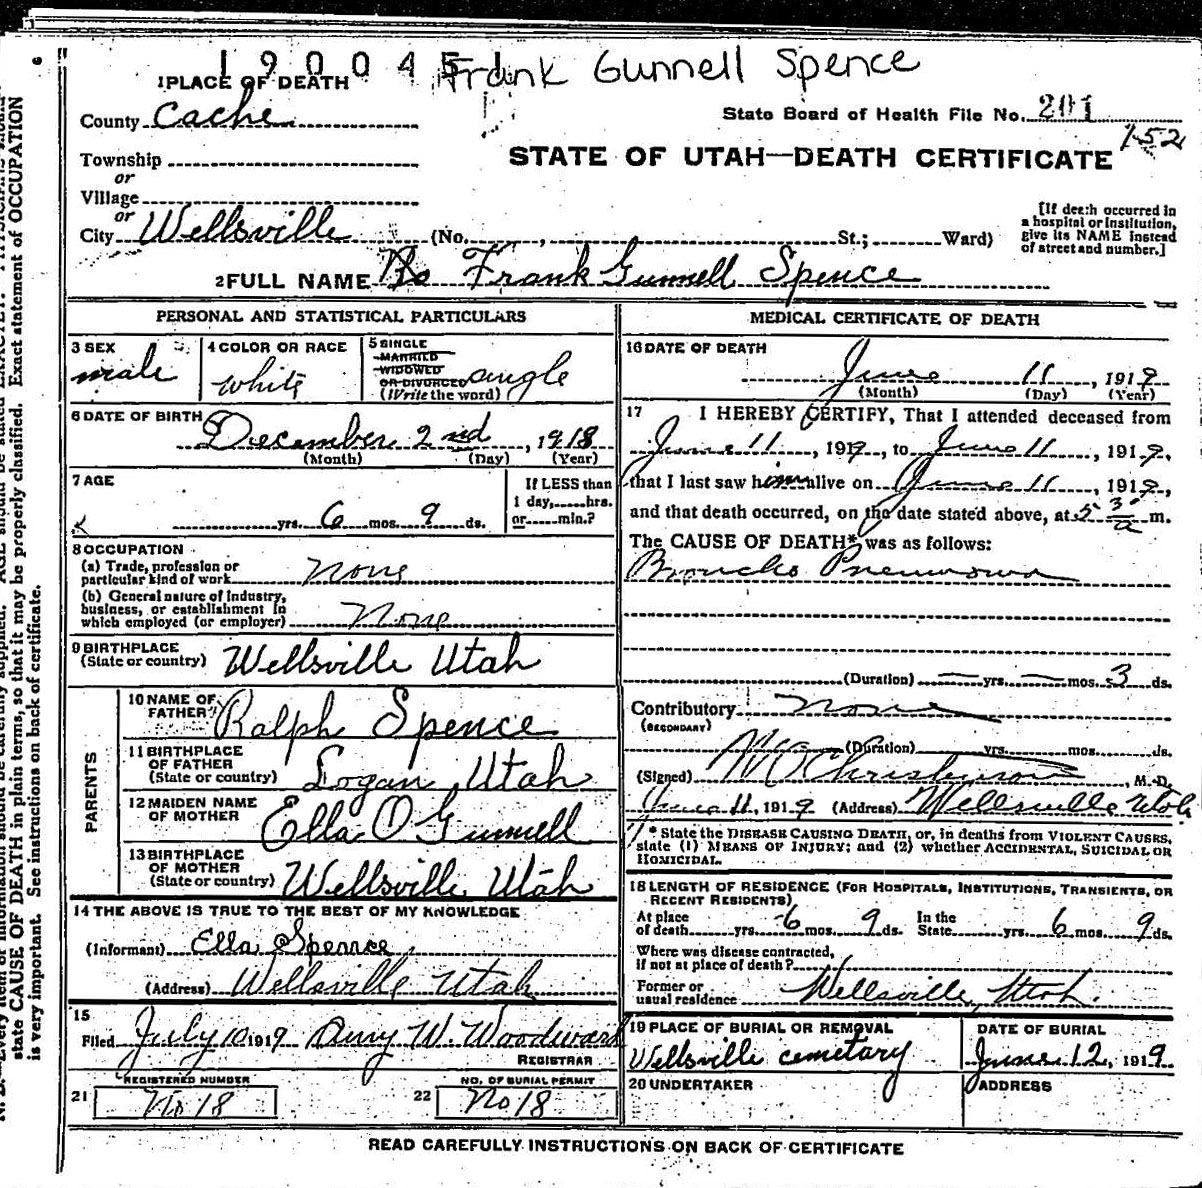 190045
Frank Gunnell Spence
1 PLACE OF DEATH
County Cache
State Board of Health File No. 201
152
Township
STATE OF UTAH—DEATH CERTIFICATE
or
Village
or
City Wellsville (No. , St.; Ward)
[If death occurred in a hospital or institution, give its NAME instead of street and number.]
2 FULL NAME Frank Gunnell Spence
PERSONAL AND STATISTICAL PARTICULARS
3 SEX male
4 COLOR OR RACE white
5 SINGLE MARRIED WIDOWED OR DIVORCED (Write the word) single
6 DATE OF BIRTH
December 2nd, 1918
(Month) (Day) (Year)
7 AGE
yrs. 6 mos. 9 ds.
If LESS than 1 day,.....hrs. or.....min.?
8 OCCUPATION
(a) Trade, profession or particular kind of work None
(b) General nature of industry, business, or establishment in which employed (or employer) None
9 BIRTHPLACE
(State or country) Wellsville Utah
PARENTS
10 NAME OF FATHER Ralph Spence
11 BIRTHPLACE OF FATHER (State or country) Logan, Utah
12 MAIDEN NAME OF MOTHER Ella O Gunnell
13 BIRTHPLACE OF MOTHER (State or country) Wellsville, Utah
14 THE ABOVE IS TRUE TO THE BEST OF MY KNOWLEDGE
(Informant) Ella Spence
(Address) Wellsville Utah
15
Filed July 10 1919 W. Woodward
REGISTRAR
REGISTERED NUMBER
21 No 18
NO. OF BURIAL PERMIT
22 No 18
MEDICAL CERTIFICATE OF DEATH
16 DATE OF DEATH
June 11, 1919
(Month) (Day) (Year)
17 I HEREBY CERTIFY, That I attended deceased from
June 11, 1919, to June 11, 1919,
that I last saw him alive on June 11, 1919,
and that death occurred, on the date stated above, at 5 30 a m.
The CAUSE OF DEATH* was as follows:
Broncho Pneumonia
(Duration) — yrs. — mos. 3 ds.
Contributory None
(SECONDARY)
(Duration) yrs. mos. ds.
(Signed) Christenson, M. D.
June 11, 1919 (Address) Wellsville Utah
* State the DISEASE CAUSING DEATH, or, in deaths from VIOLENT CAUSES, state (1) MEANS OF INJURY; and (2) whether ACCIDENTAL, SUICIDAL OR HOMICIDAL.
18 LENGTH OF RESIDENCE (FOR HOSPITALS, INSTITUTIONS, TRANSIENTS, OR RECENT RESIDENTS)
At place of death yrs. 6 mos. 9 ds. In the State yrs. 6 mos. 9 ds.
Where was disease contracted, if not at place of death?
Former or usual residence Wellsville, Utah.
19 PLACE OF BURIAL OR REMOVAL
Wellsville cemetary
DATE OF BURIAL
June 12, 1919
20 UNDERTAKER
ADDRESS
READ CAREFULLY INSTRUCTIONS ON BACK OF CERTIFICATE
state CAUSE OF DEATH in plain terms, so that it may be properly classified. Exact statement of OCCUPATION
is very important. See instructions on back of certificate.